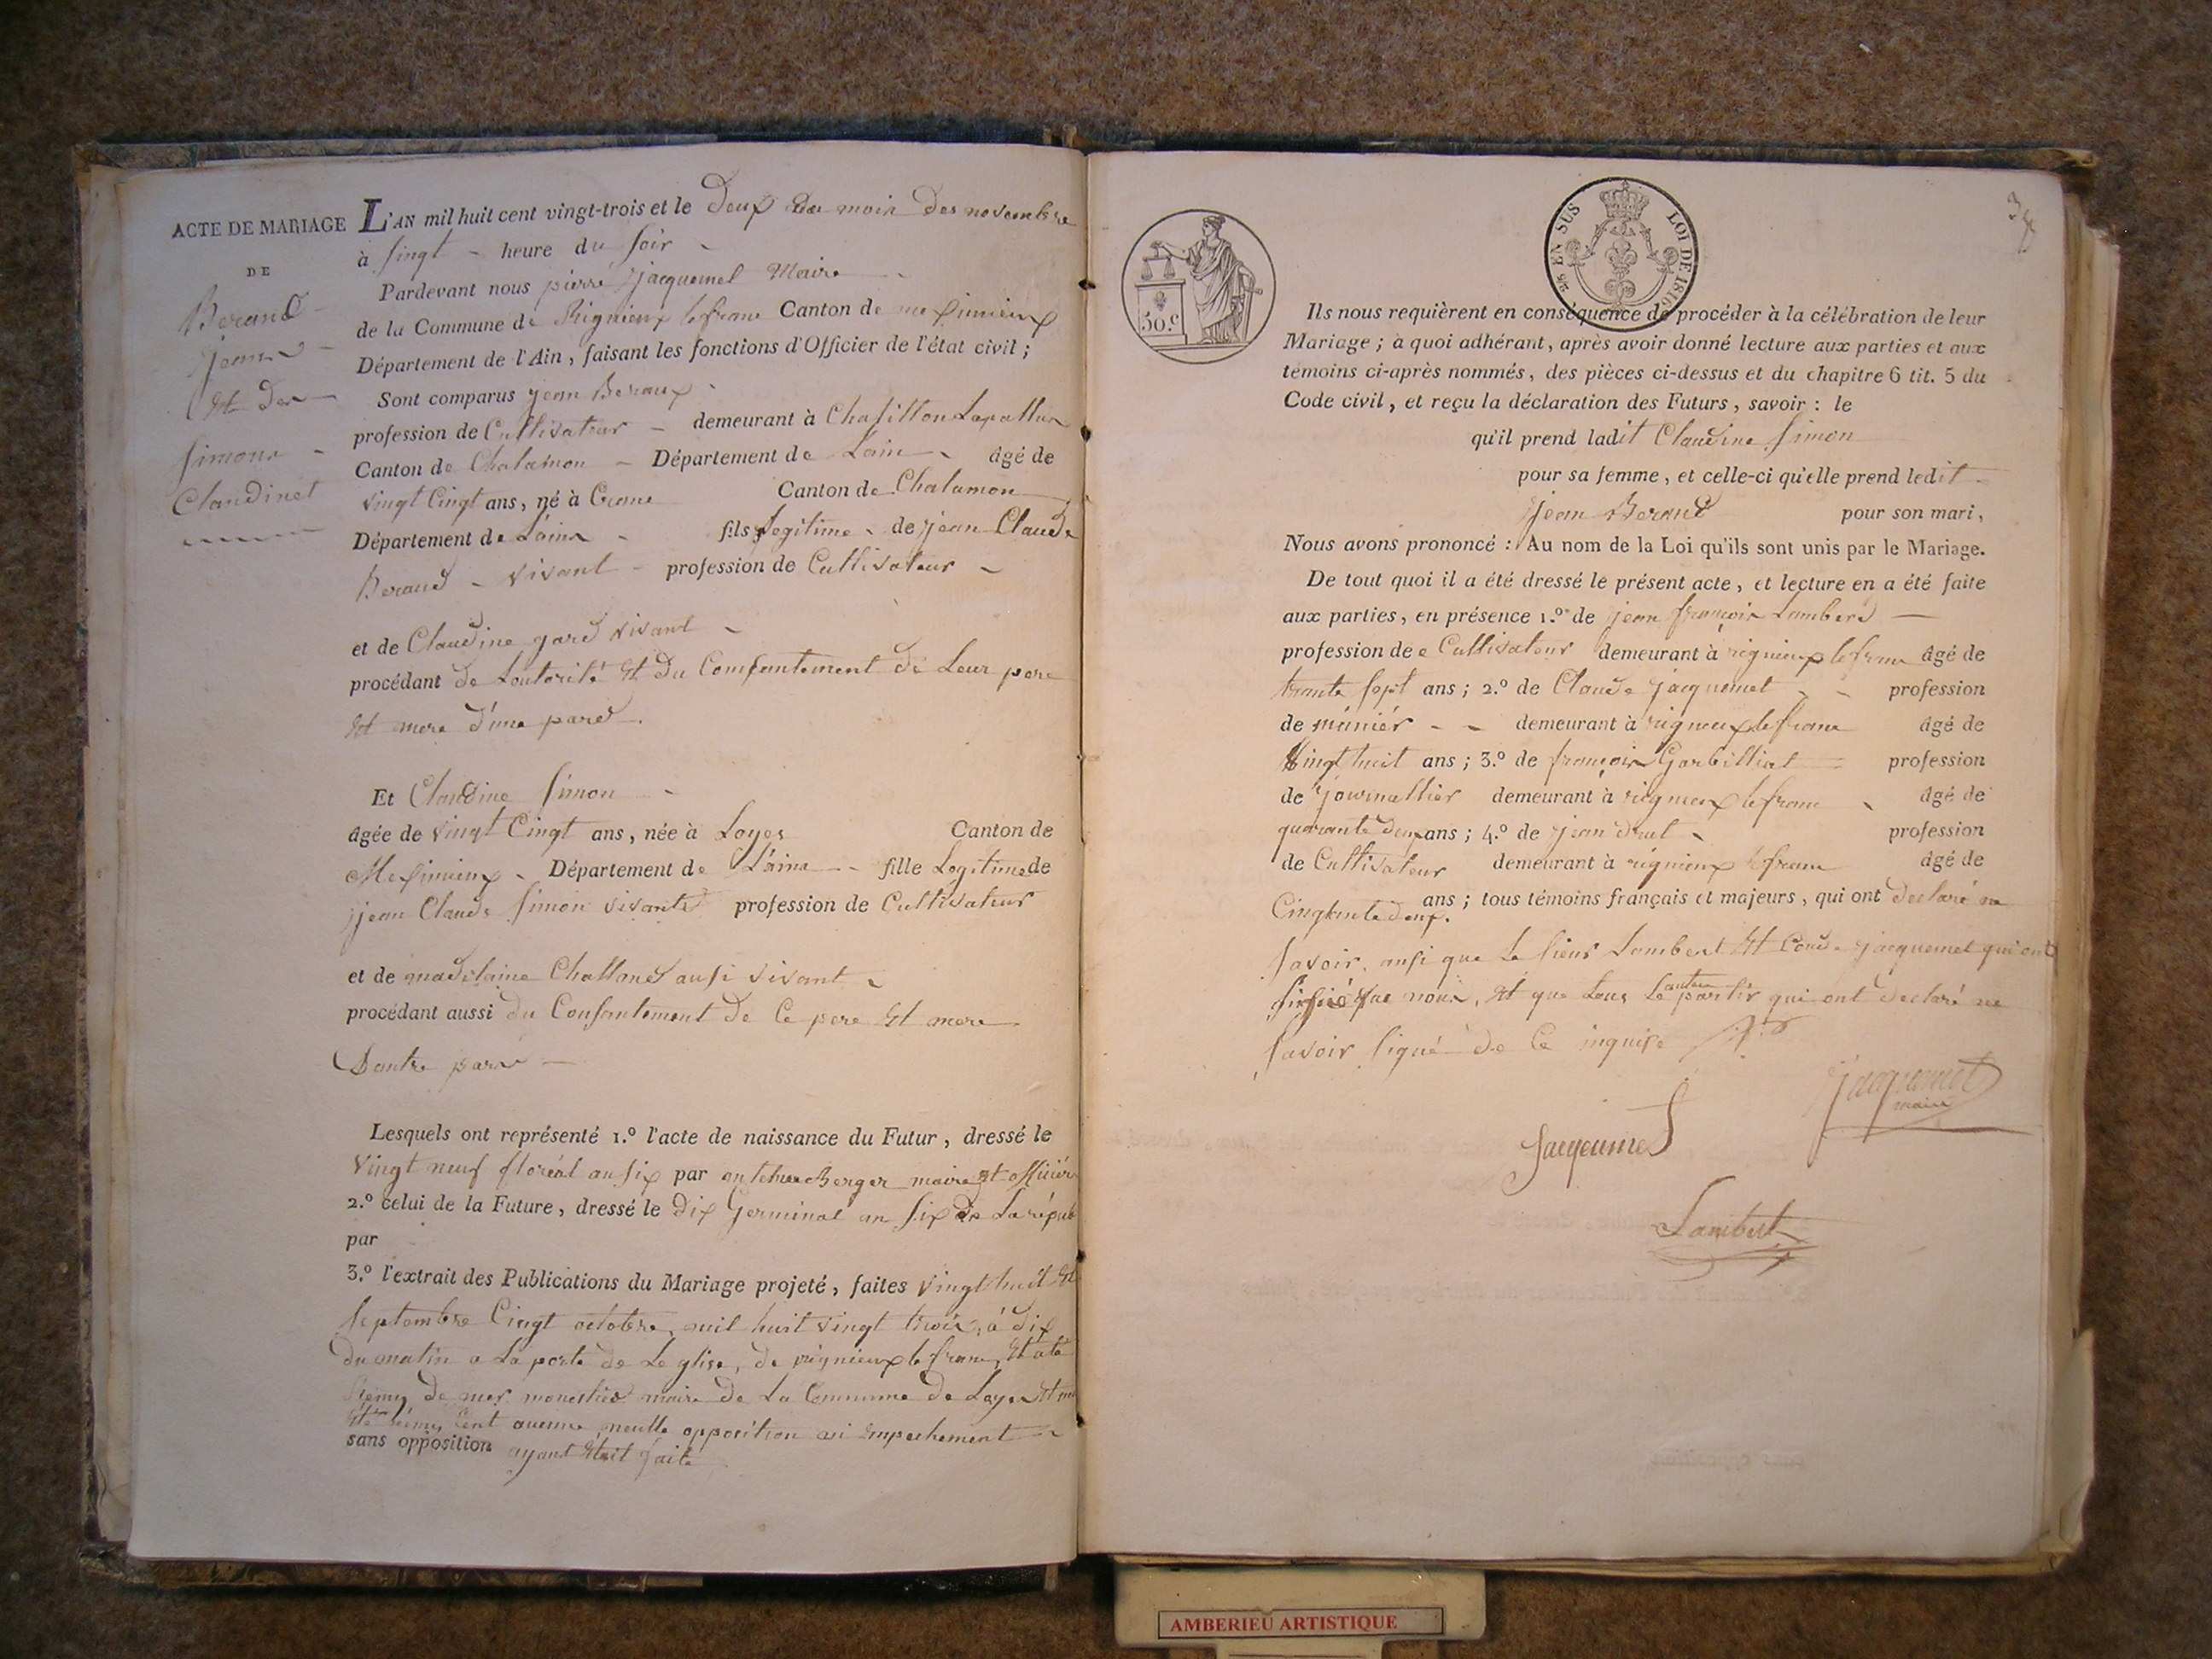 ACTE DE MARIAGE
DE
Beraud
Jean
Et de
Simone
Claudinet
L'AN mil huit cent vingt-trois et le Deux du mois des novembre
à singt heure du soir
Pardevant nous pierre jacquemet Maire
de la Commune de Rignieux lefranc Canton de meximieux
Département de l'Ain, faisant les fonctions d'Officier de l'état civil;
Sont comparus jean Beraux
profession de Cultivateur demeurant à Chatillon Lapallux
Canton de Chalamon Département de Lain âgé de
vingt Cingt ans, né à Crane Canton de Chalamon
Département de Lainx fils Legitime de jean Claude
Beraud vivant profession de Cultivateur
et de Claudine gard vivant
procédant de Loutorité Et du Consantement de Leur pere
Et mere d'une pared
Et Claudine Simon
âgée de vingt Cingt ans, née à Loyes Canton de
Meximieux Département de L'aina fille Legitime de
jean Claude Simon vivante profession de Cultivateur
et de madelaine Challand ausi vivant
procédant aussi du Consantement de Ce pere Et mere
Dautre pard
Lesquels ont représenté 1.º l'acte de naissance du Futur, dressé le
vingt neuf floréal an six par Berger maire Et officier
2.º celui de la Future, dressé le dix Germinal an six de La répub
par
3.º l'extrait des Publications du Mariage projeté, faites vingt huit Et
septembre Cingt octobre mil huit vingt trois, à dix
du matin a La porte de Le glise, de rignieux le franc, Et
de mer maire de La Commune de Loyes Et
opposition ni empechement
sans opposition ayant Etait faite
50.c
EN SUS
LOI DE 1816
Ils nous requièrent en conséquence de procéder à la célébration de leur
Mariage; à quoi adhérant, après avoir donné lecture aux parties et aux
témoins ci-après nommés, des pièces ci-dessus et du chapitre 6 tit. 5 du
Code civil, et reçu la déclaration des Futurs, savoir: le
qu'il prend ladit Claudine Simon
pour sa femme, et celle-ci qu'elle prend ledit
Jean Beraud pour son mari,
Nous avons prononcé: Au nom de la Loi qu'ils sont unis par le Mariage.
De tout quoi il a été dressé le présent acte, et lecture en a été faite
aux parties, en présence 1.º de jean françois Lamberd
profession de Cultivateur demeurant à rignieux lefranc âgé de
trante sept ans; 2.º de Claude jacquemet profession
de muniér demeurant à rigneux lefranc âgé de
vingt huit ans; 3.º de françois Garbilliat profession
de journallier demeurant à rigneux lefranc âgé de
quarante deux ans; 4.º de jean drut profession
de Cultivateur demeurant à rignieux lefranc âgé de
Cingkante deux. ans; tous témoins français et majeurs, qui ont declaré ne
savoir, ansi que Le sieur Lambert Et Coude jacquemet qui ont
que nous, Et que tous Le autre partir qui ont declaré ne
savoir signé de Ce inquise
jacquemet
maire
Jacqeumet
Lambert
AMBERIEU ARTISTIQUE